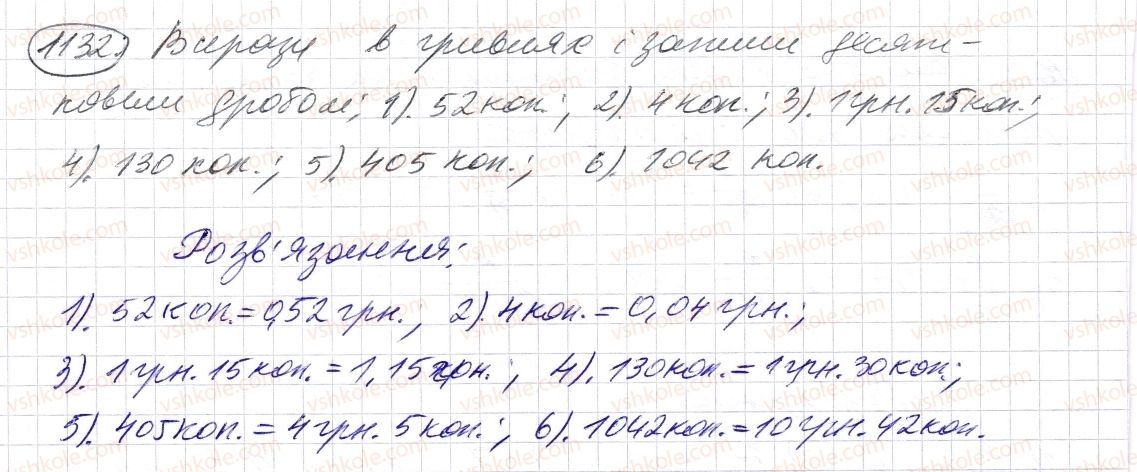 1132. Вирази в гривнях і запиши десят-
ковим дробом; 1). 52 коп.; 2). 4 коп.; 3). 1 грн. 15 коп.;
4). 130 коп.; 5). 405 коп.; 6). 1042 коп.
Розв'язання:
1). 52 коп. = 0,52 грн.; 2). 4 коп. = 0,04 грн.;
3). 1 грн. 15 коп. = 1,15 грн.; 4). 130 коп. = 1 грн. 30 коп.;
5). 405 коп. = 4 грн. 5 коп.; 6). 1042 коп. = 10 грн. 42 коп.
vshkole.com